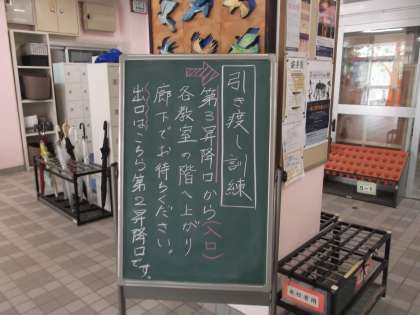 引き渡し訓練
第3昇降口から(入口)
各教室の階へ上がり
廊下でお待ちください。
出口はこちら第2昇降口です。
来校者用